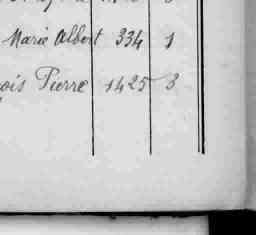 Marie Albert 334 1
ois Pierre 1425 3